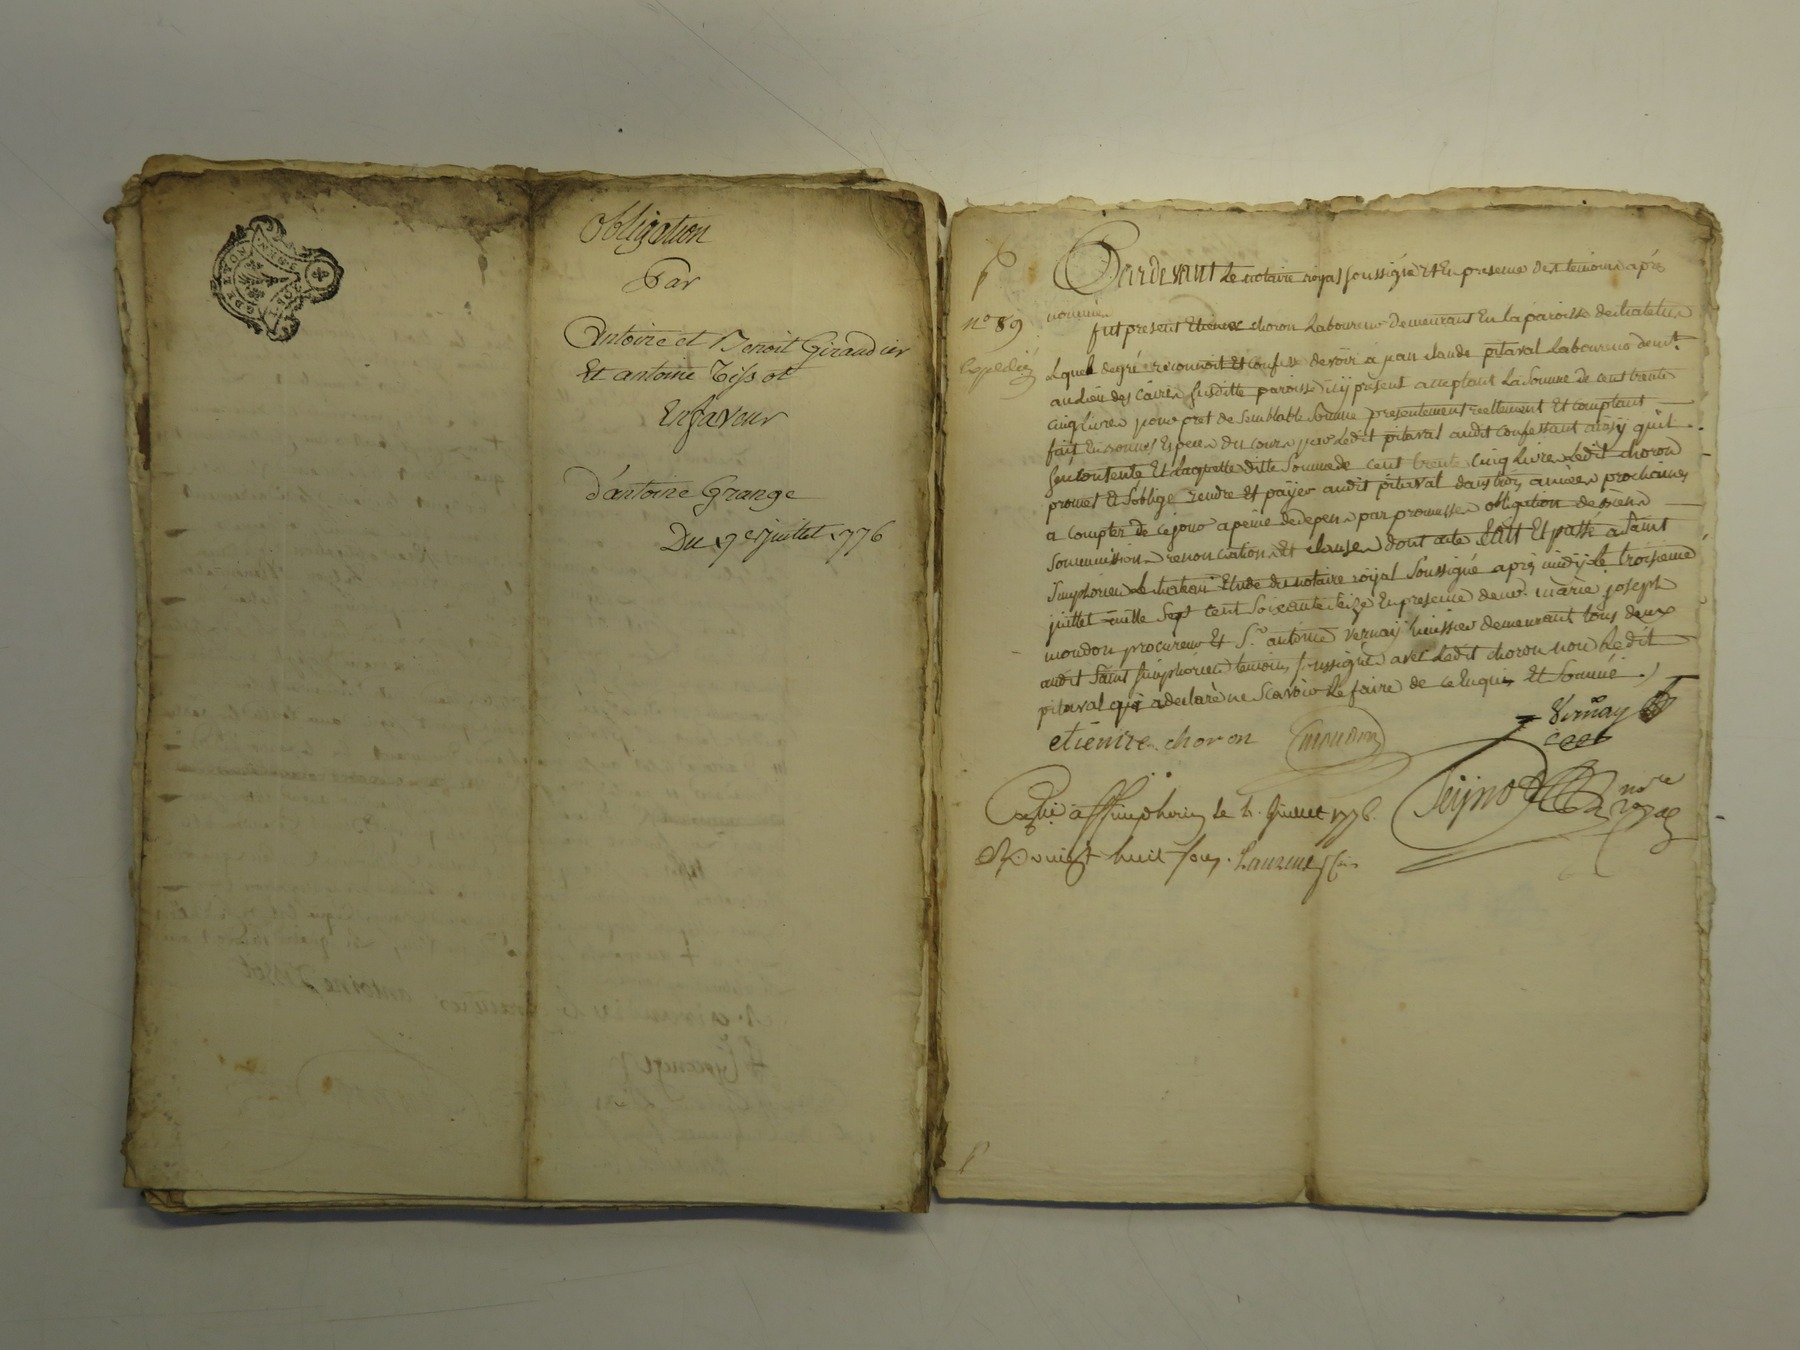 GDE LYON
Obligation
Par
Antoine et Benoit Giraudier
Et antoine Tissot
En faveur
d'antoine Grange
Du 17e juillet 1776
n° 89
Expédiée
Pardevant Le notaire royal soussigné Et En presence des temoins après
nommés
fut présent Etienne choron Laboureur Demeurant En la paroisse de chatelus
Lequel de gré reconnoit Et confesse devoir a jean claude pitaval Laboureur demt.
au lieu des susditte paroisse icy présent acceptant La Somme de cent trente
cinq livres pour pret de Semblable Somme présentement reellement Et comptant
fait En bonnes Especes du cours par Ledit pitaval audit confessant ainsy quil
sen contente Et laquelle ditte Somme de cent trente cinq livres Ledit choron
promet Et S'oblige rendre Et payer audit pitaval dans trois années prochaines
a compter de ce jour a peine de depens par promesse obligation de biens
Soummissions renonciations Et clauses dont acte FAIT Et passé a Saint
Simphorien Le chateau Etude du notaire royal Soussigné après midy Le troisieme
juillet mille Sept cent Soixante Seize En presence de mr. marie joseph
moudon procureur Et Sr. antoine vernay huissier demeurant tous deux
audit Saint Simphorien temoins soussignés avec Ledit choron non Ledit
pitaval qui a declaré ne Scavoir Le faire de ce Enquis Et Sommé.
Vernay
etienne choron moudon
nore
royal
à St Simphorien le juillet 1776.
Rx vingt huit sous. Laurent